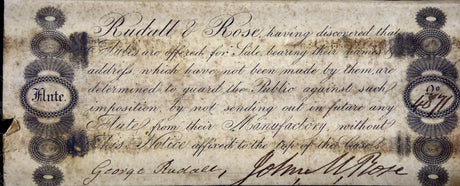 Rudall & Rose, having discovered that
Flutes are offered for Sale bearing their names &
address which have not been made by them, are
determined to guard the Public against such
imposition, by not sending out in future any
Flute from their Manufactory, without
this Notice affixed to the top of the Case
George Rudall, John M Rose
Flute.
No
4871